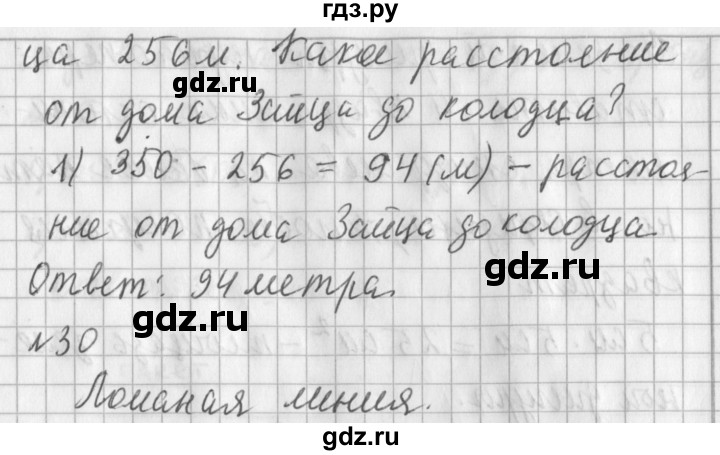 гдз.ру
ца 256 м. Какое расстояние
gdz.ru
от дома Зайца до колодца?
1) 350 - 256 = 94 (м) - расстоя-
ние от дома Зайца до колодца
gdz.ru
Ответ: 94 метра.
gdz.ru
№30
Ломаная линия.
gdz.ru